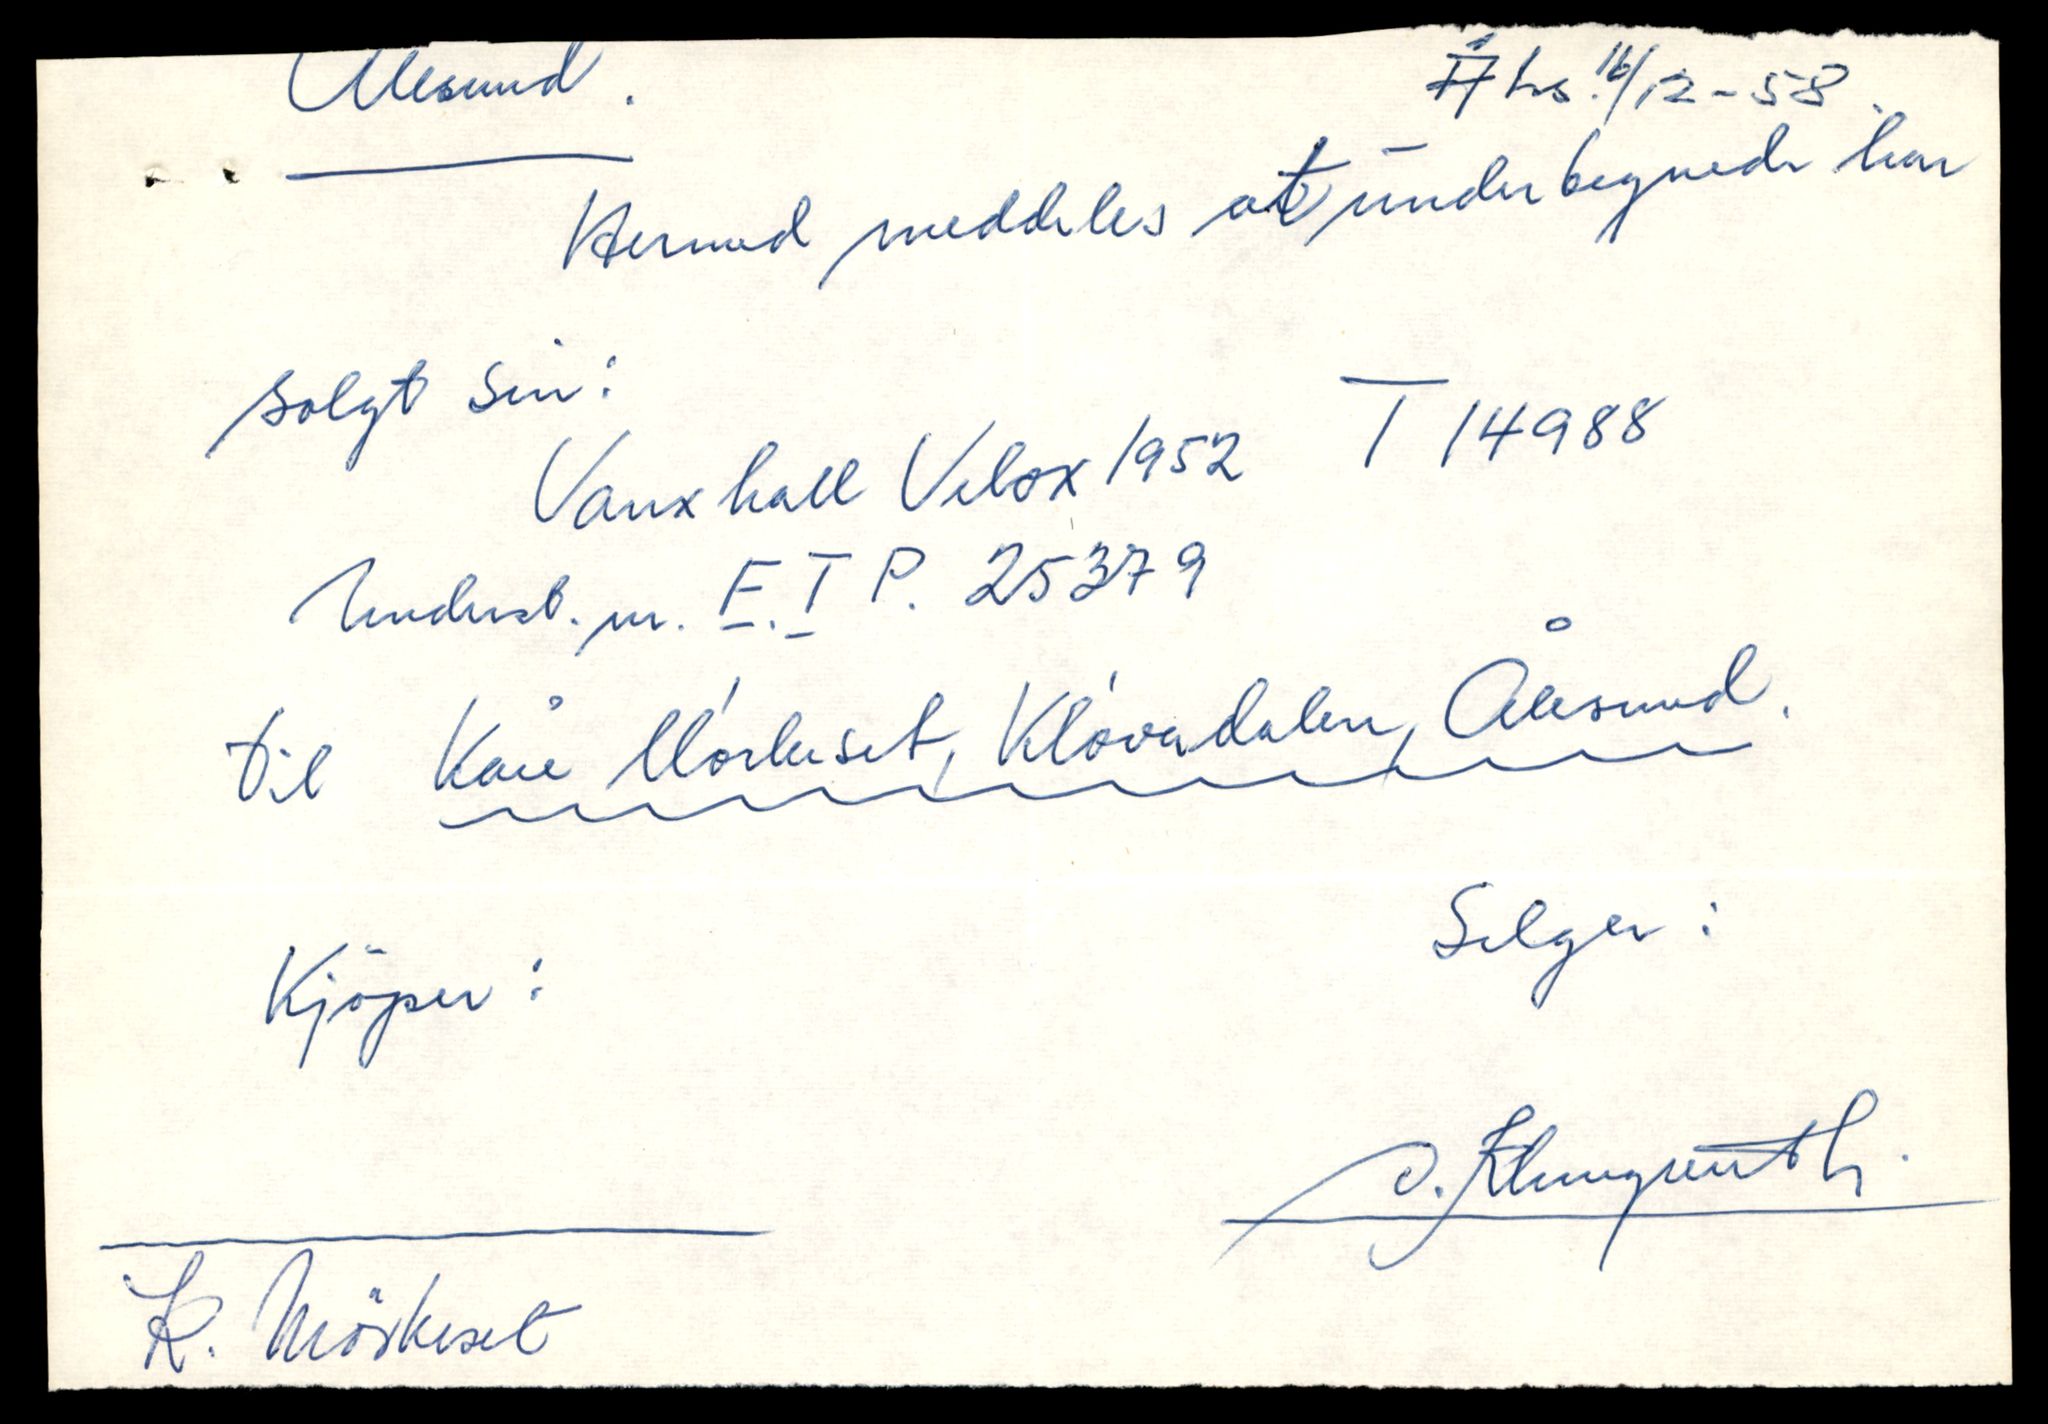 Ålesund.
Ås. 16/12-58.
Hermed meddeles at undertegnede har
solgt sin:
Vauxhall Velox 1952 T 14988
Understb. nr. E.I P. 25379
til Kåre Mörkeset, Klöverdalen, Ålesund.
Selger:
Kjöper:
K. Mörkeset